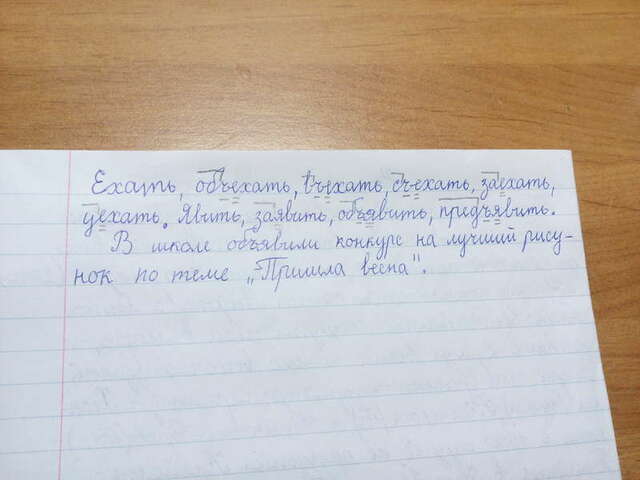 Ехать, объехать, въехать, съехать, заехать,
уехать. Явить, заявить, объявить, предъявить.
В школе объявили конкурс на лучший рису-
нок по теме „Пришла весна".